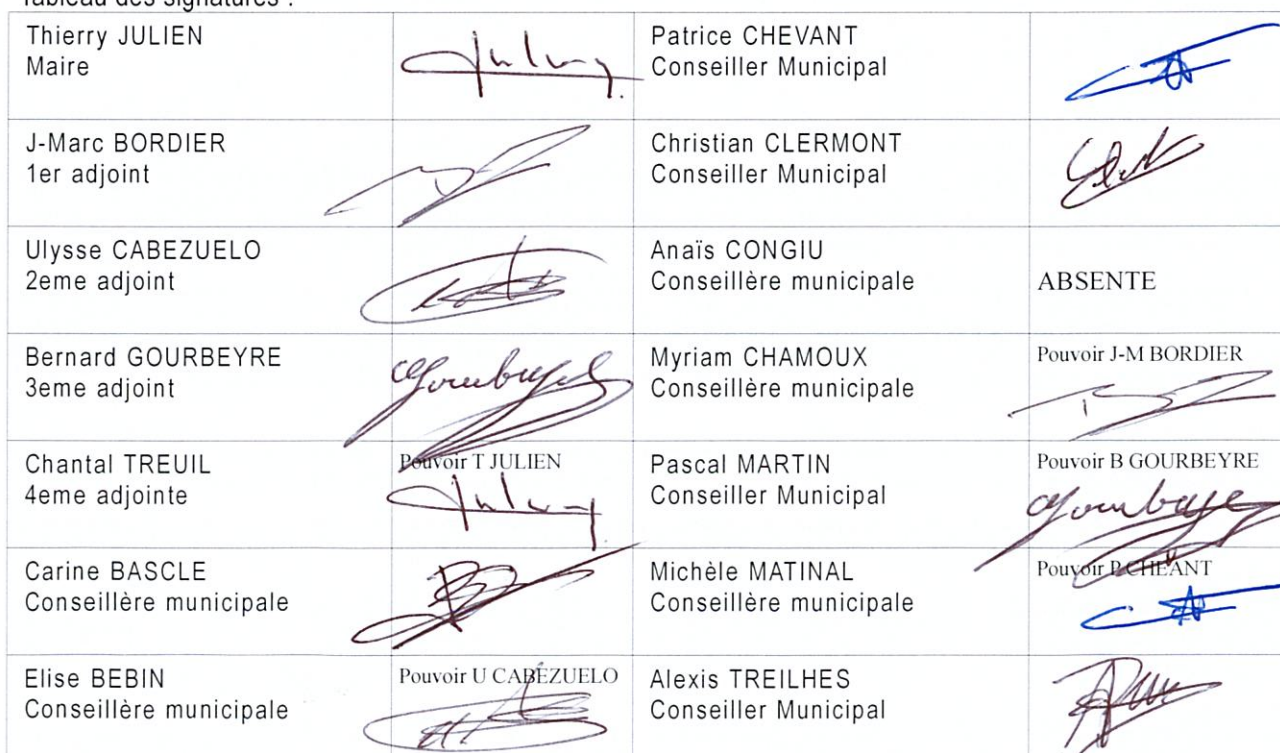 Tableau des signatures :
Thierry JULIEN
Maire
Patrice CHEVANT
Conseiller Municipal
J-Marc BORDIER
1er adjoint
Christian CLERMONT
Conseiller Municipal
Ulysse CABEZUELO
2eme adjoint
Anaïs CONGIU
Conseillère municipale
ABSENTE
Bernard GOURBEYRE
3eme adjoint
Myriam CHAMOUX
Conseillère municipale
Pouvoir J-M BORDIER
Chantal TREUIL
4eme adjointe
Pouvoir T JULIEN
Pascal MARTIN
Conseiller Municipal
Pouvoir B GOURBEYRE
Carine BASCLE
Conseillère municipale
Michèle MATINAL
Conseillère municipale
Pouvoir P CHEANT
Elise BEBIN
Conseillère municipale
Pouvoir U CABEZUELO
Alexis TREILHES
Conseiller Municipal